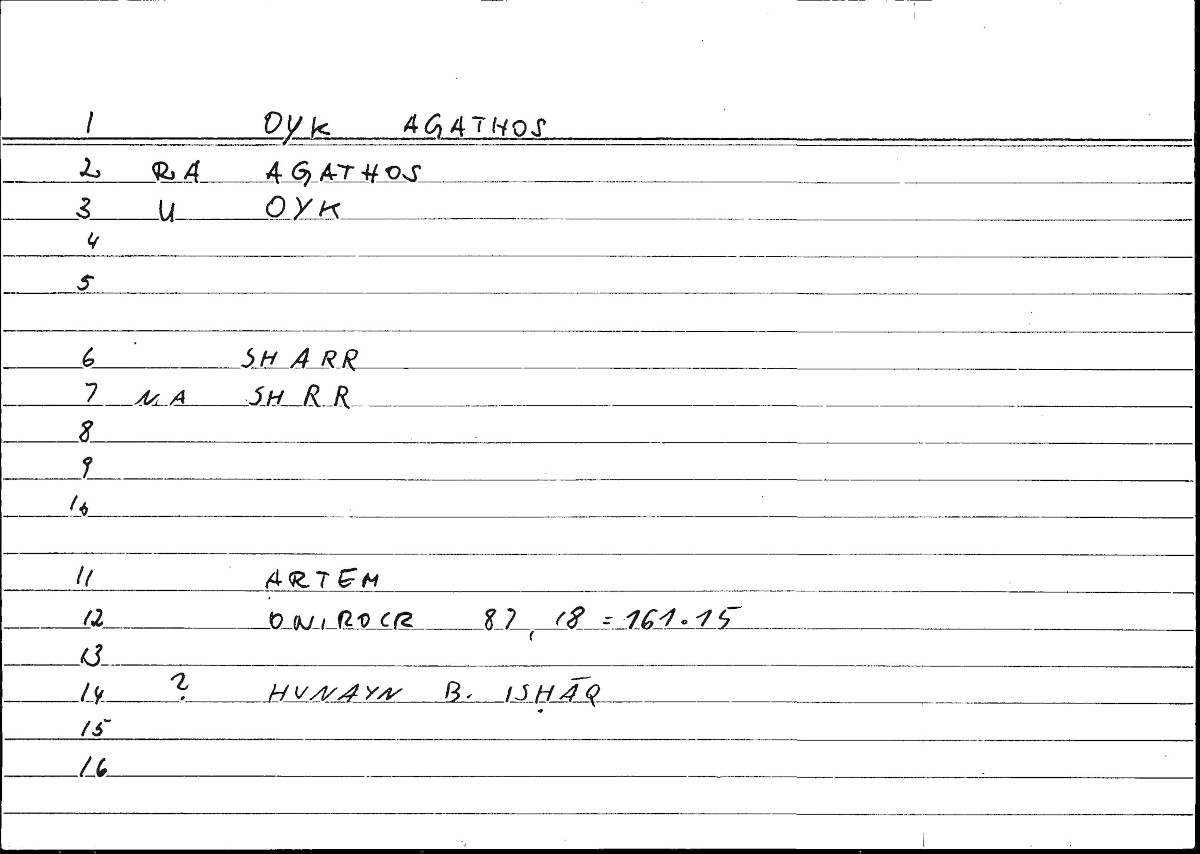 1 OYK AGATHOS
2 RA AGATHOS
3 U OYK
4
5
6 SHARR
7 NA SHRR
8
9
10
11 ARTEM
12 ONIROCR 87, 18 = 161.15
13
14 ? HUNAYN B. ISḤĀQ
15
16